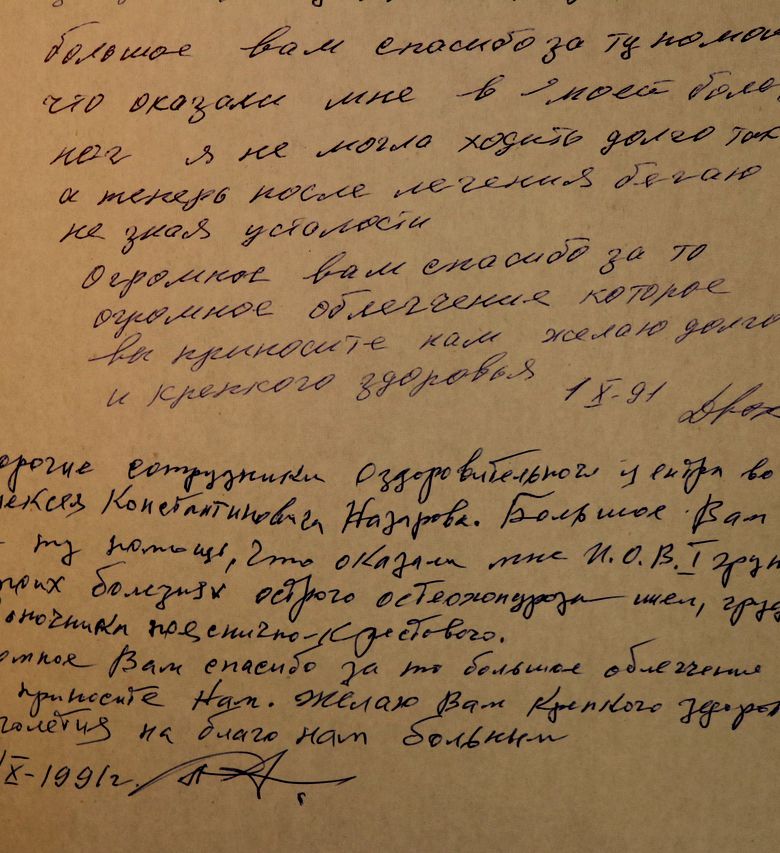 большое вам спасибо за ту помощ
что оказали мне в моей боле
ног я не могла ходить долго так
а теперь после лечения бегаю
не зная усталости
Огромное вам спасибо за то
огромное облегчение которое
вы приносите нам желаю долго
и крепкого здоровья 1 X-91
орогие сотрудники Оздоровительного центра во
лексея Константиновича Назарова. Большое Вам
ту помощь, что оказали мне И.О.В. I груп
моих болезнях острого остеохондроза шеи, груд
оночника пояснично-Крестового.
омное Вам спасибо за то большое облегчение
приносите Нам. Желаю Вам Крепкого здоров
голетия на благо нам больным
X-1991г.